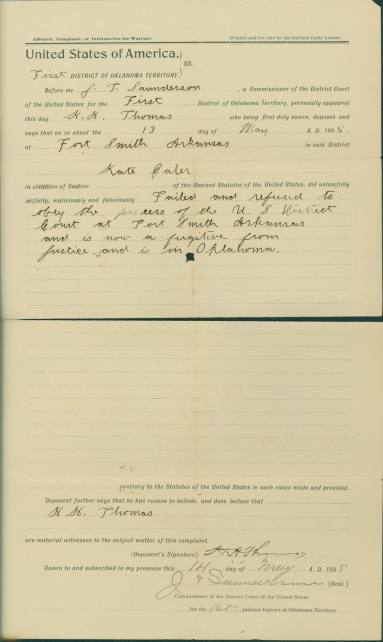 Affidavit, Complaint, or Information for Warrant. Printed and for sale by the Guthrie Daily Leader.
United States of America, } ss.
First DISTRICT OF OKLAHOMA TERRITORY.
Before me J. T. Saunderson, a Commissioner of the District Court
of the United States for the First District of Oklahoma Territory, personally appeared
this day H. H. Thomas who being first duly sworn, deposes and
says that on or about the 13 day of May A. D. 1895,
at Fort Smith Arkansas in said District
Kate
in violation of Section of the Revised Statutes of the United States, did unlawfully
wilfully, maliciously and feloniously Failed and refused to
obey the process of the U. S District
Court at Fort Smith Arkansas
and is now a fugitive from
Justice, and is in Oklahoma.
contrary to the Statutes of the United States in such cases made and provided.
Deponent further says that he has reason to believe, and does believe that
H H. Thomas
are material witnesses to the subject matter of this complaint.
(Deponent's Signature) H H Thomas
Sworn to and subscribed in my presence this 14 day of May A. D. 1895
J T Saunderson (Seal.)
Commissioner of the District Court of the United States
for the 1st Judicial District of Oklahoma Territory.